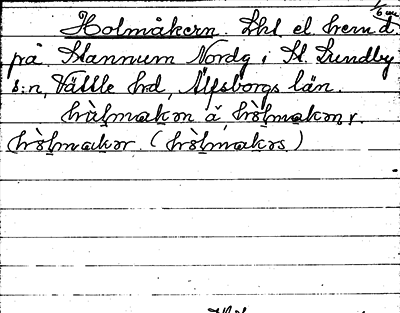 Holmåkern. Lht el hemd.
på Stannum Nordg i St. Lundby
s:n, Vättle hd, Älfsborgs län.
hòlmakon å hòlmakonr.
hòlmakor. (hòlmakos)